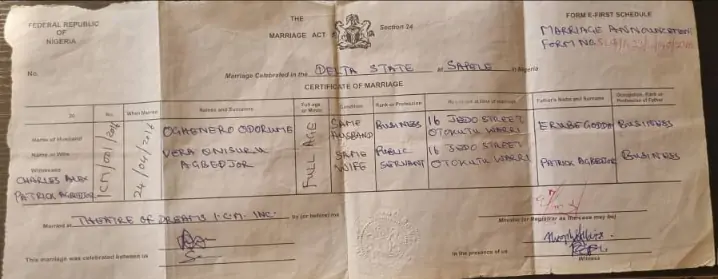 FEDERAL REPUBLIC
OF
NIGERIA
THE
MARRIAGE ACT
Section 24
FORM E-FIRST SCHEDULE
MARRIAGE ANNOUNCEMENT
FORM NO
No.
Marriage Celebrated in the DELTA STATE at SAPELE in Nigeria
CERTIFICATE OF MARRIAGE
No. When Married Names and Surname Full age or Minor Condition Rank or Profession Residence at time of marriage Father's Name and Surname Occupation, Rank or Profession of Father
Name of Husband OGHENERO ODORUME SAME HUSBAND BUSINESS 16 JEDO STREET OTOKUTU WARRI GODDAY BUSINESS
Name or Wife VERA AGBEDJOR SAME WIFE PUBLIC SERVANT 16 JEDO STREET OTOKUTU WARRI PATRICK AGBEDJOR BUSINESS
FULL AGE
Witnesses
CHARLES ALEX
PATRICK AGBEDJOR
Married at THEATRE OF DREAMS I.C.M. INC. by (or before) me
Minister (or Registrar as the case may be)
This marriage was celebrated between us
In the presence of us
Witness